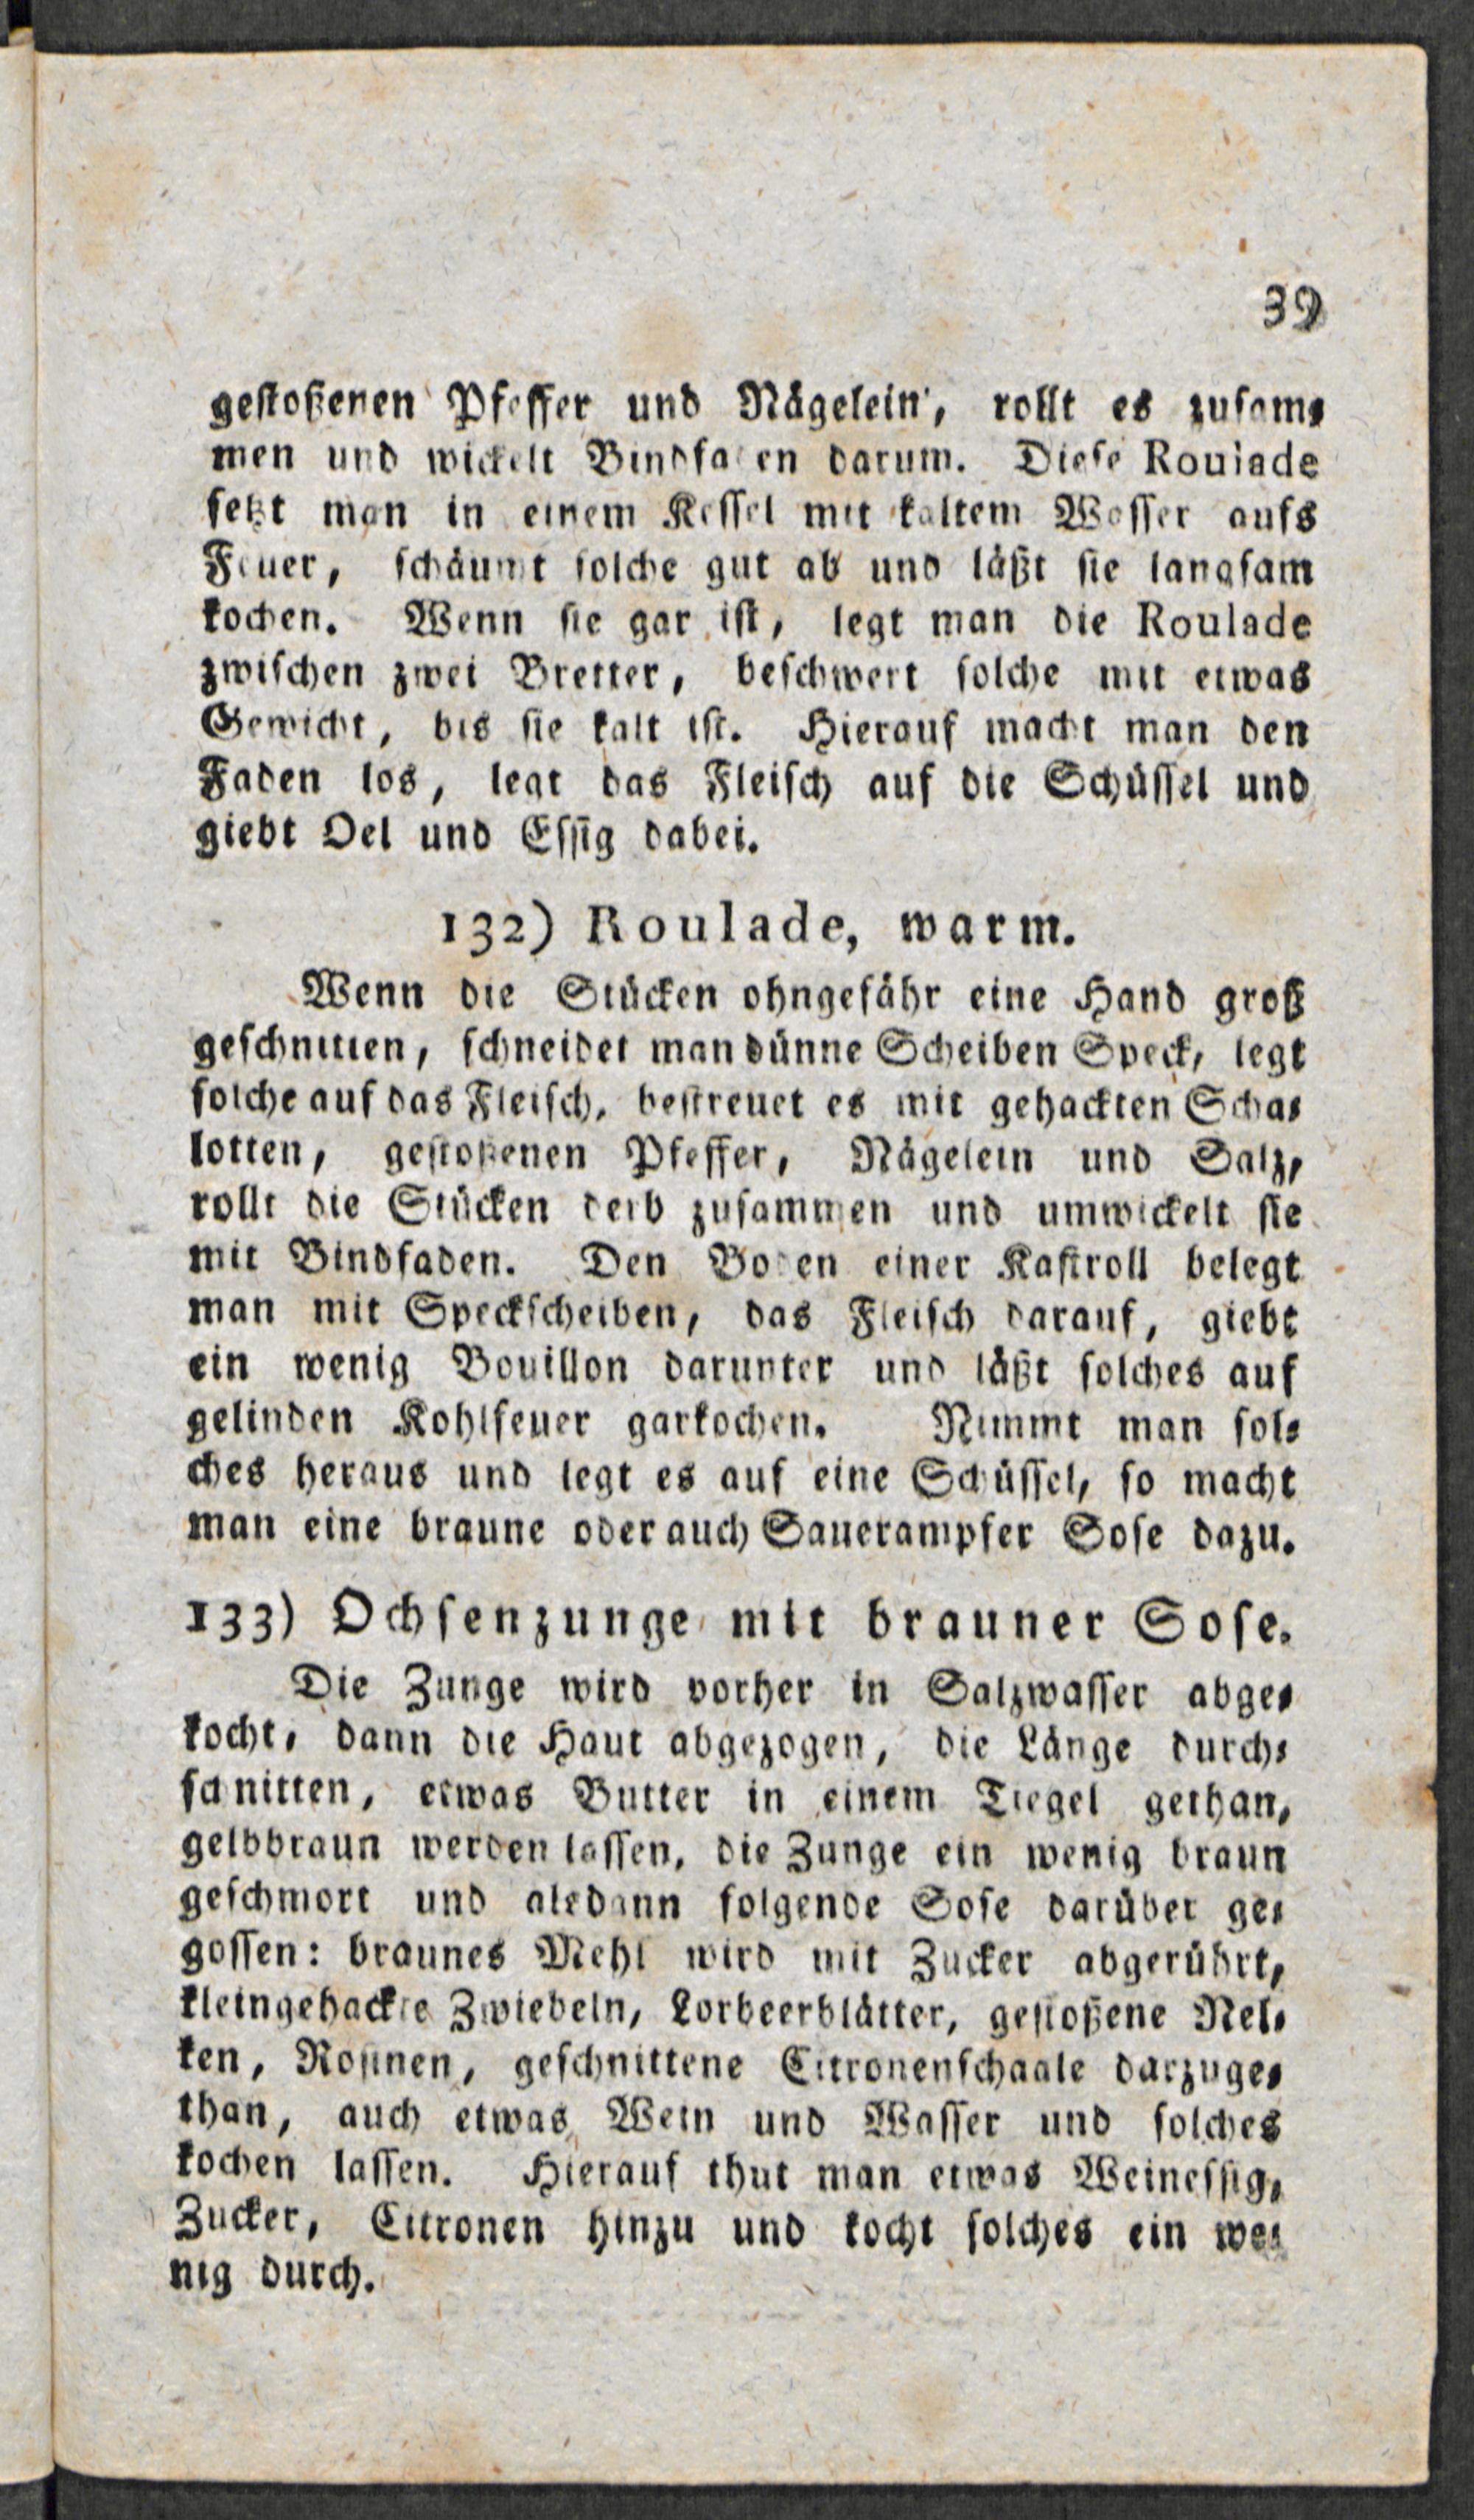 39
gestoßenen Pfeffer und Nägelein, rollt es zusam⸗
men und wickelt Bindfaden darum. Diese Roulade
setzt man in einem Kessel mit kaltem Wasser aufs
Feuer, schäumt solche gut ab und läßt sie langsam
kochen. Wenn sie gar ist, legt man die Roulade
zwischen zwei Bretter, beschwert solche mit etwas
Gewicht, bis sie kalt ist. Hierauf macht man den
Faden los, legt das Fleisch auf die Schüssel und
giebt Oel und Essig dabei.
132) Roulade, warm.
Wenn die Stücken ohngefähr eine Hand groß
geschnitten, schneidet man dünne Scheiben Speck, legt
solche auf das Fleisch, bestreuet es mit gehackten Scha⸗
lotten, gestoßenen Pfeffer, Nägelein und Salz,
rollt die Stücken derb zusammen und umwickelt sie
mit Bindfaden. Den Boden einer Kastroll belegt
man mit Speckscheiben, das Fleisch darauf, giebt
ein wenig Bouillon darunter und läßt solches auf
gelinden Kohlfeuer garkochen. Nimmt man sol⸗
ches heraus und legt es auf eine Schüssel, so macht
man eine braune oder auch Sauerampfer Sose dazu.
133) Ochsenzunge mit brauner Sose.
Die Zunge wird vorher in Salzwasser abge⸗
kocht, dann die Haut abgezogen, die Länge durch⸗
schnitten, etwas Butter in einem Tiegel gethan,
gelbbraun werden lassen, die Zunge ein wenig braun
geschmort und alsdann folgende Sose darüber ge⸗
gossen: braunes Mehl wird mit Zucker abgerührt,
kleingehackte Zwiebeln, Lorbeerblätter, gestoßene Nel⸗
ken, Rosinen, geschnittene Citronenschaale darzuge⸗
than, auch etwas Wein und Wasser und solches
kochen lassen. Hierauf thut man etwas Weinessig,
Zucker, Citronen hinzu und kocht solches ein we⸗
nig durch.